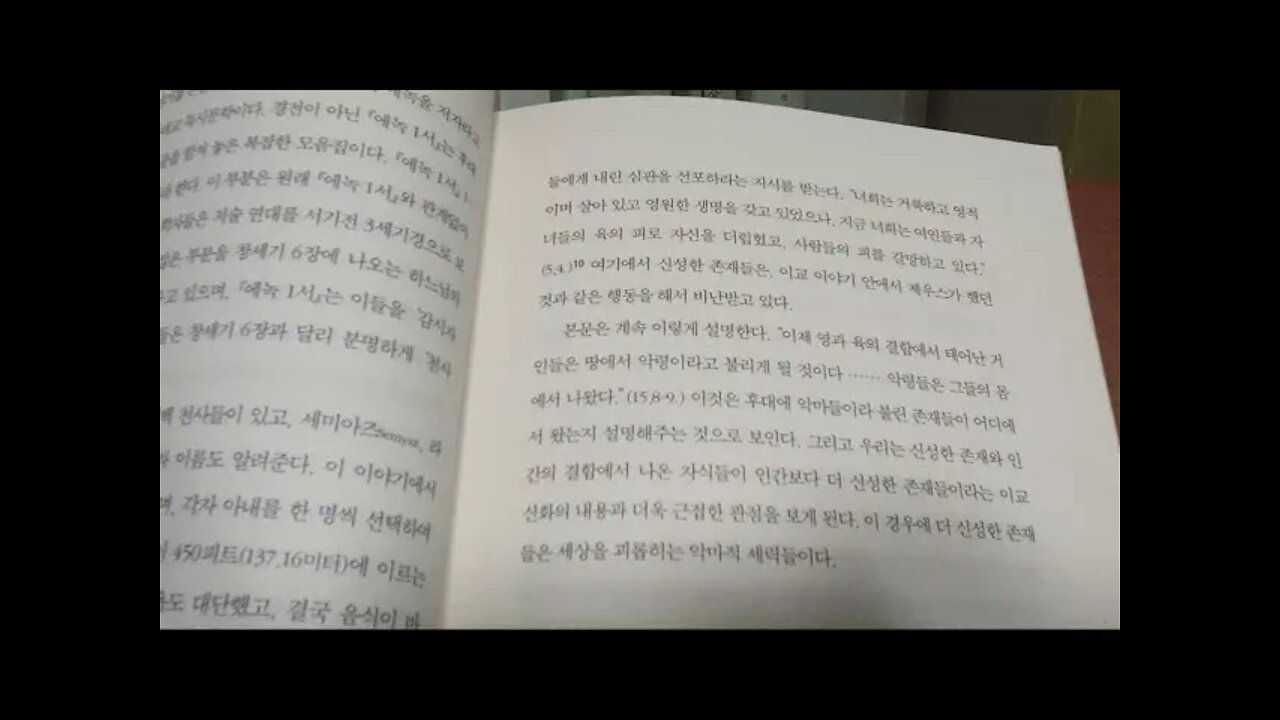 지자라고
경전이 아닌 『에녹 1서』는 후대
놓은 복잡한 모음집이다. 『에녹 1서』 1-
한다. 이 부분은 원래 『에녹 1서』와 관계없이
학자들은 저술 연대를 서기전 3세기경으로 보
부분을 창세기 6장에 나오는 하느님의
고 있으며, 『에녹 1서』는 이들을 '감시자
들은 창세기 6장과 달리 분명하게 '천사
천사들이 있고, 세미아즈Semyaz, 라
이름도 알려준다. 이 이야기에서
며, 각자 아내를 한 명씩 선택하여
450피트(137.16미터)에 이르는
도 대단했고, 결국 음식이 바
들에게 내린 심판을 선포하라는 지시를 받는다. "너희는 거룩하고 영적
이며 살아 있고 영원한 생명을 갖고 있었으나, 지금 너희는 여인들과 자
녀들의 육의 피로 자신을 더럽혔고, 사람들의 피를 갈망하고 있다."
(5,4.)¹⁰ 여기에서 신성한 존재들은, 이교 이야기 안에서 제우스가 했던
것과 같은 행동을 해서 비난받고 있다.
본문은 계속 이렇게 설명한다. "이제 영과 육의 결합에서 태어난 거
인들은 땅에서 악령이라고 불리게 될 것이다 …… 악령들은 그들의 몸
에서 나왔다."(15,8-9.) 이것은 후대에 악마들이라 불린 존재들이 어디에
서 왔는지 설명해주는 것으로 보인다. 그리고 우리는 신성한 존재와 인
간의 결합에서 나온 자식들이 인간보다 더 신성한 존재들이라는 이교
신화의 내용과 더욱 근접한 관점을 보게 된다. 이 경우에 더 신성한 존재
들은 세상을 괴롭히는 악마적 세력들이다.